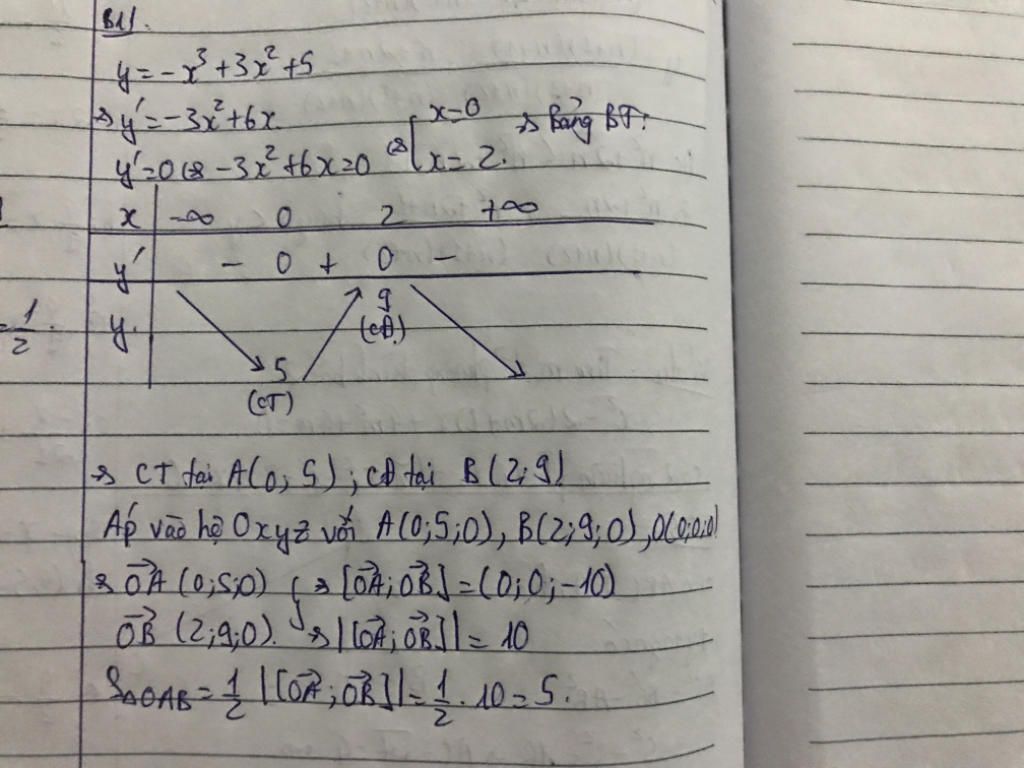 B1).
y = -x³ + 3x² + 5
=> y' = -3x² + 6x.
y' = 0 <=> -3x² + 6x = 0 <=> [ x = 0 x = 2. => Bảng BT:
x -∞ 0 2 +∞
y' - 0 + 0 -
y. 9
(CĐ)
5
(CT)
= 1/2.
=> CT tại A(0; 5); CĐ tại B(2; 9)
Áp vào hệ Oxyz với A(0;5;0), B(2;9;0), O(0;0;0)
=> OA→ (0;5;0) } => [OA→; OB→] = (0; 0; -10)
OB→ (2;9;0). => |[OA→; OB→]| = 10
S△OAB = 1/2 |[OA→; OB→]| = 1/2 . 10 = 5.